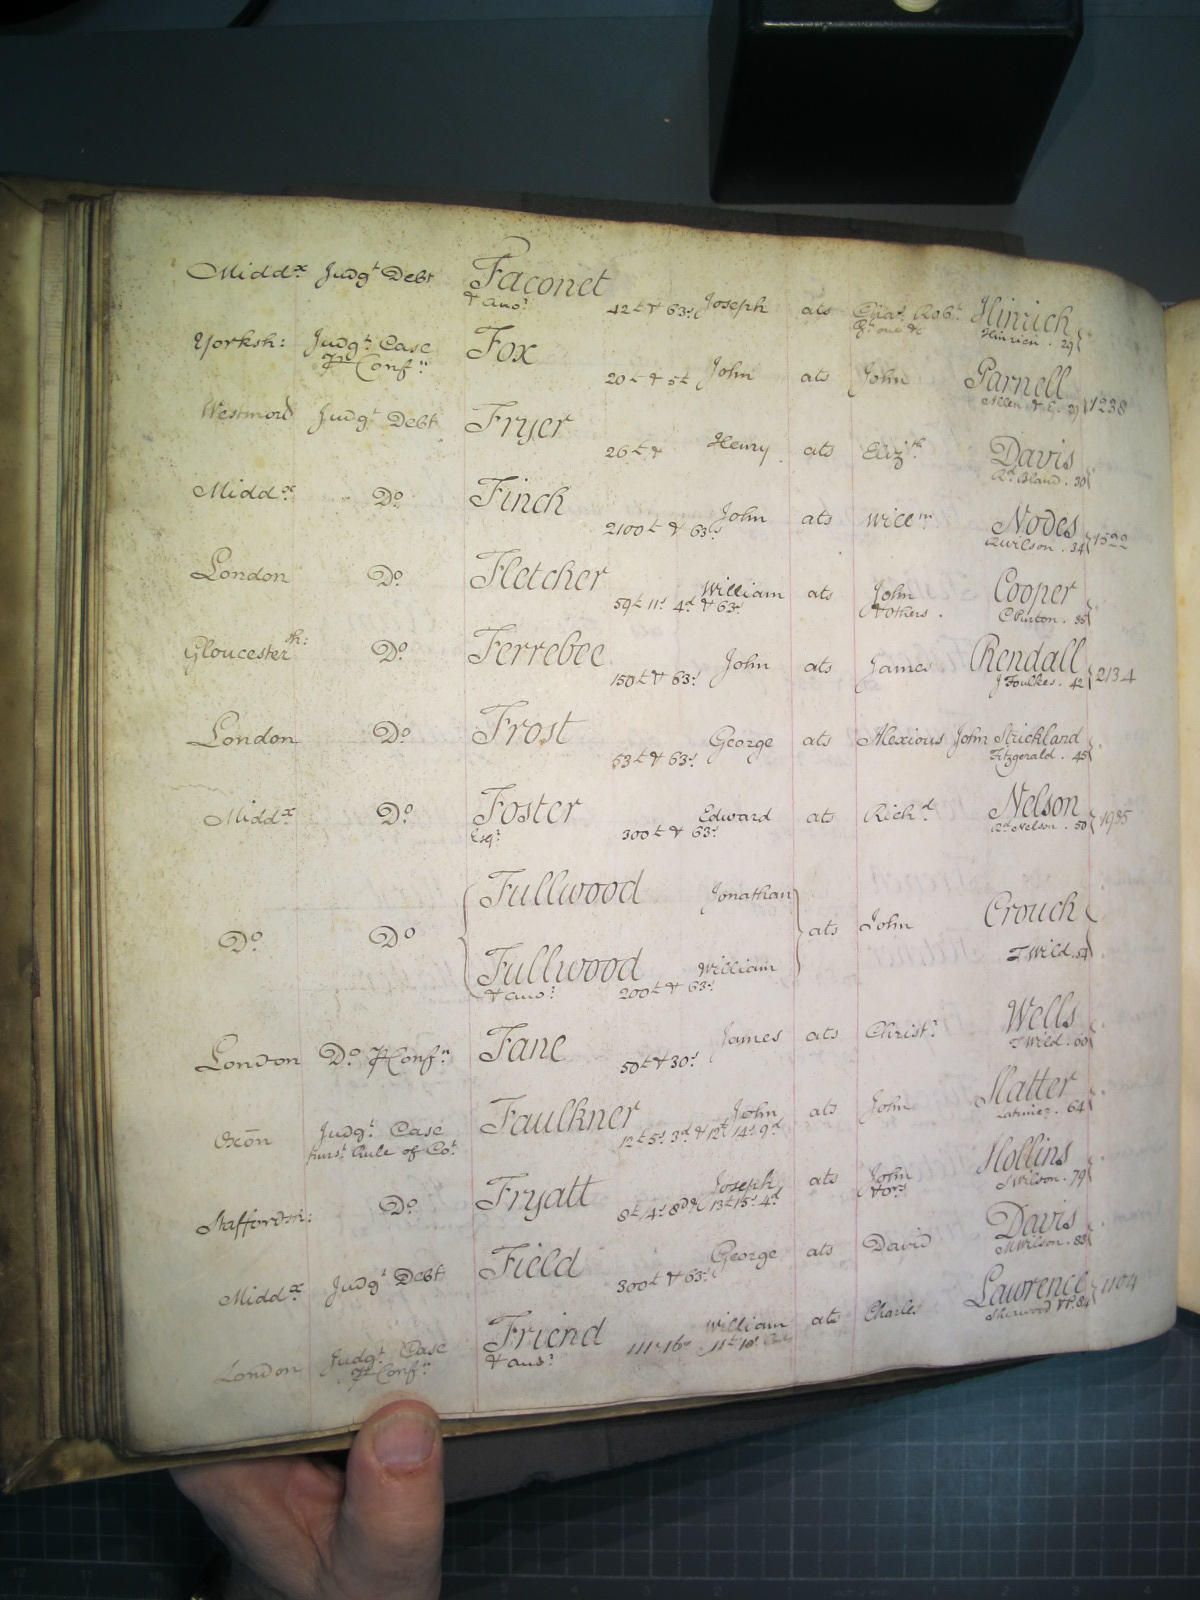 Middx Judgt Debt Faconet
& anor 42£ & 63s Joseph ats Chas Robt Hinrich
Hinrich . 29
Yorksh: Judgt Case Fox
P Confn 20£ & 5£ John ats John Parnell
Allen & C. 29 1238
Westmord Judgt Debt Fryer
26£ & Henry ats Elizth Davis
Rd Bland . 30
Middx Do Finch
2100£ & 63s John ats Willm Nodes
R Wilson . 34
London Do Fletcher
59£ 11s 4d & 63s William ats John Cooper
& others . C Purton . 35
Gloucestersh: Do Ferrebee
150£ & 63s John ats James Rendall
J Foulkes . 42 2134
London Do Frost
53£ & 63s George ats Alexious John Strickland
Fitzgerald . 45
Middx Do Foster
Esqr 300£ & 63s Edward ats Richd Nelson
Rd Nelson . 50 1985
Fullwood Jonathan
Do Do ats John Crouch
T Wild . 54
Fullwood William
& anor 200£ & 63s
London Do P Confn Fane
50£ & 30s James ats Christr Wells
T Wild . 60
Oxōn Judgt Case Faulkner
purst Rule of Cot 12£ 5s 3d & 12£ 14s 9d John ats John Slatter
Latimer . 64
Staffordsh: Do Fryatt
8£ 14s 8d & 13£ 15s 4d Joseph ats John Hollins
& ors J Wilson . 79
Middx Judgt Debt Field
300£ & 63s George ats David Davis
M Wilson . 83
London Judgt Case Friend
P Confn & anor William ats Charles Lawrence
Sherwood & P. 84 1104